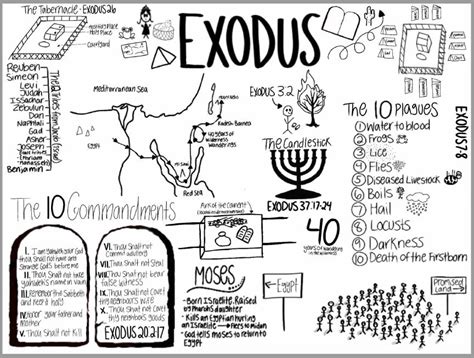 The Tabernacle - EXODUS 26
Holy Place
Courtyard
EXODUS
Reuben
Simeon
Levi
Judah
Issachar
Zebulun
Dan
Naphtali
Gad
Asher
Joseph
Benjamin
Mediterranean Sea
Kadesh Barnea
40 years of
wilderness
wanderings
Egypt
Red Sea
EXODUS 3:2
The Candlestick
EXODUS 37:17-24
40
years of wandering
in the wilderness
The 10 Plagues
EXODUS 7-8
① Water to blood
② Frogs
③ Lice
④ Flies
⑤ Diseased Livestock
⑥ Boils
⑦ Hail
⑧ Locusts
⑨ Darkness
⑩ Death of the Firstborn
The 10 Commandments
I. I am
your God
thou Shalt not have
Gods before
me
II. Thou Shalt not take
name in vain
III. Remember the Sabbath
and keep it holy
IV. Honor your father and
mother
V. Thou Shalt not Kill
VI. Thou Shalt not
Commit adultery
VII. Thou Shalt not Steal
VIII. Thou Shalt not bear
false witness
IX. Thou Shalt not Covet
thy neighbor's wife
X. Thou Shalt not Covet
thy neighbors goods
EXODUS 20:2-17
Ark of the Covenant
MOSES
- Born Israelite. Raised
by Pharaoh's daughter
- Kills an Egyptian hurting
an Israelite → Flees to midian
- God tells moses to return
Egypt
Promised
Land